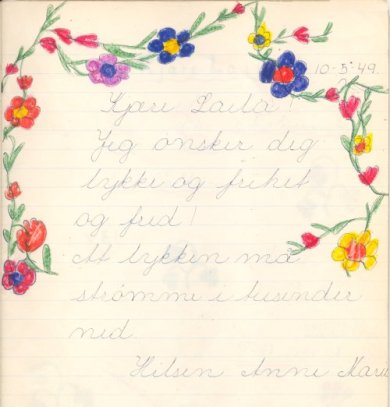 10-5-49.
Kjære Laila!
Jeg ønsker dig
lykke og frihet
og fred!
At lykken må
strømme i tusinder
ned.
Hilsen Anne Marie